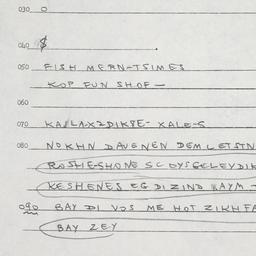 030 O
040 $ .
050 FISH MERN-TSIMES
KOP FUN SHOF —
060
070 KAYLAXZDIKE- XALES
080 NOKHN DAVENEN DEM LETSTN
ROSHESHONE
KESHENES EG DI ZIND WAYM -
090 BAY DI VOS ME HOT ZIKH FA
BAY ZEY